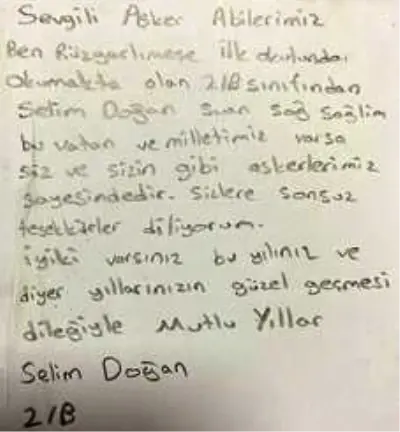 Sevgili Asker Abilerimiz
Ben Rüzgarlımeşe ilk okulunda
Okumakta olan 2/B sınıfından
Selim Doğan Şuan sağ sağlim
bu vatan ve milletimiz varsa
siz ve sizin gibi askerlerimiz
sayesindedir. Sizlere sonsuz
teşekkürler diliyorum.
iyiki varsınız bu yılınız ve
diyer yıllarınızın güzel geçmesi
dileğiyle Mutlu Yıllar
Selim Doğan
2/B